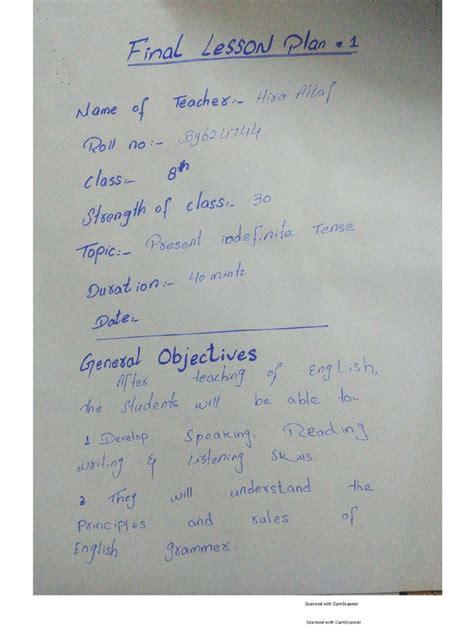 Final Lesson Plan # 1
Name of Teacher:- Hira Altaf
Roll no:- By624744
Class:- 8th
Strength of class:- 30
Topic:- Present indefinite Tense
Duration:- 40 mints
Date:-
General Objectives
After teaching of English,
the students will be able to:-
1 Develop, Speaking, Reading
writing & Listening Skills.
2 They will understand the
Principles and rules of
English grammer.
Scanned with CamScanner
Scanned with CamScanner